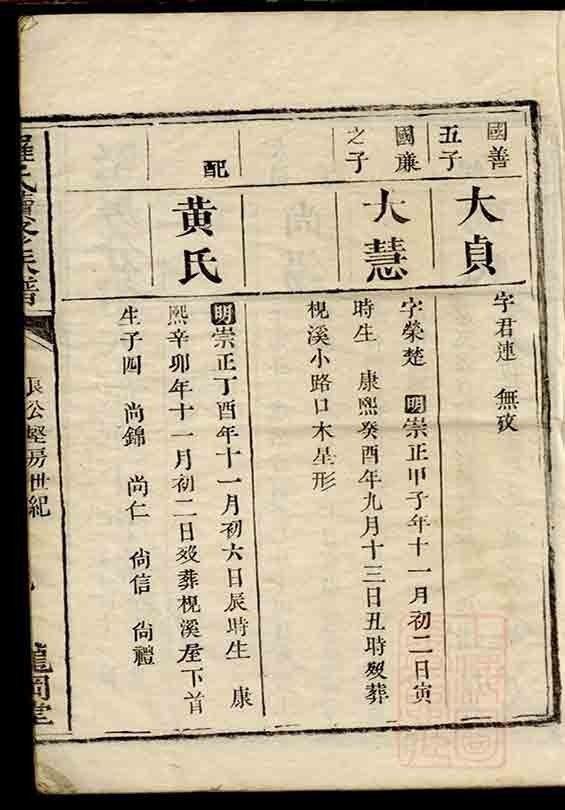 國善
五子
大貞
字君連　無攷
國廉
之子
大慧
字榮楚　明崇正甲子年十一月初二日寅
時生　康熙癸酉年九月十三日丑時歿葬
枧溪小路口木星形
配
黄氏
明崇正丁酉年十一月初六日辰時生　康
熙辛卯年十一月初二日歿葬枧溪屋下首
生子四　尚錦　尚仁　尙信　尙禮
羅氏續修族譜
良公堅房世紀
龍岡堂